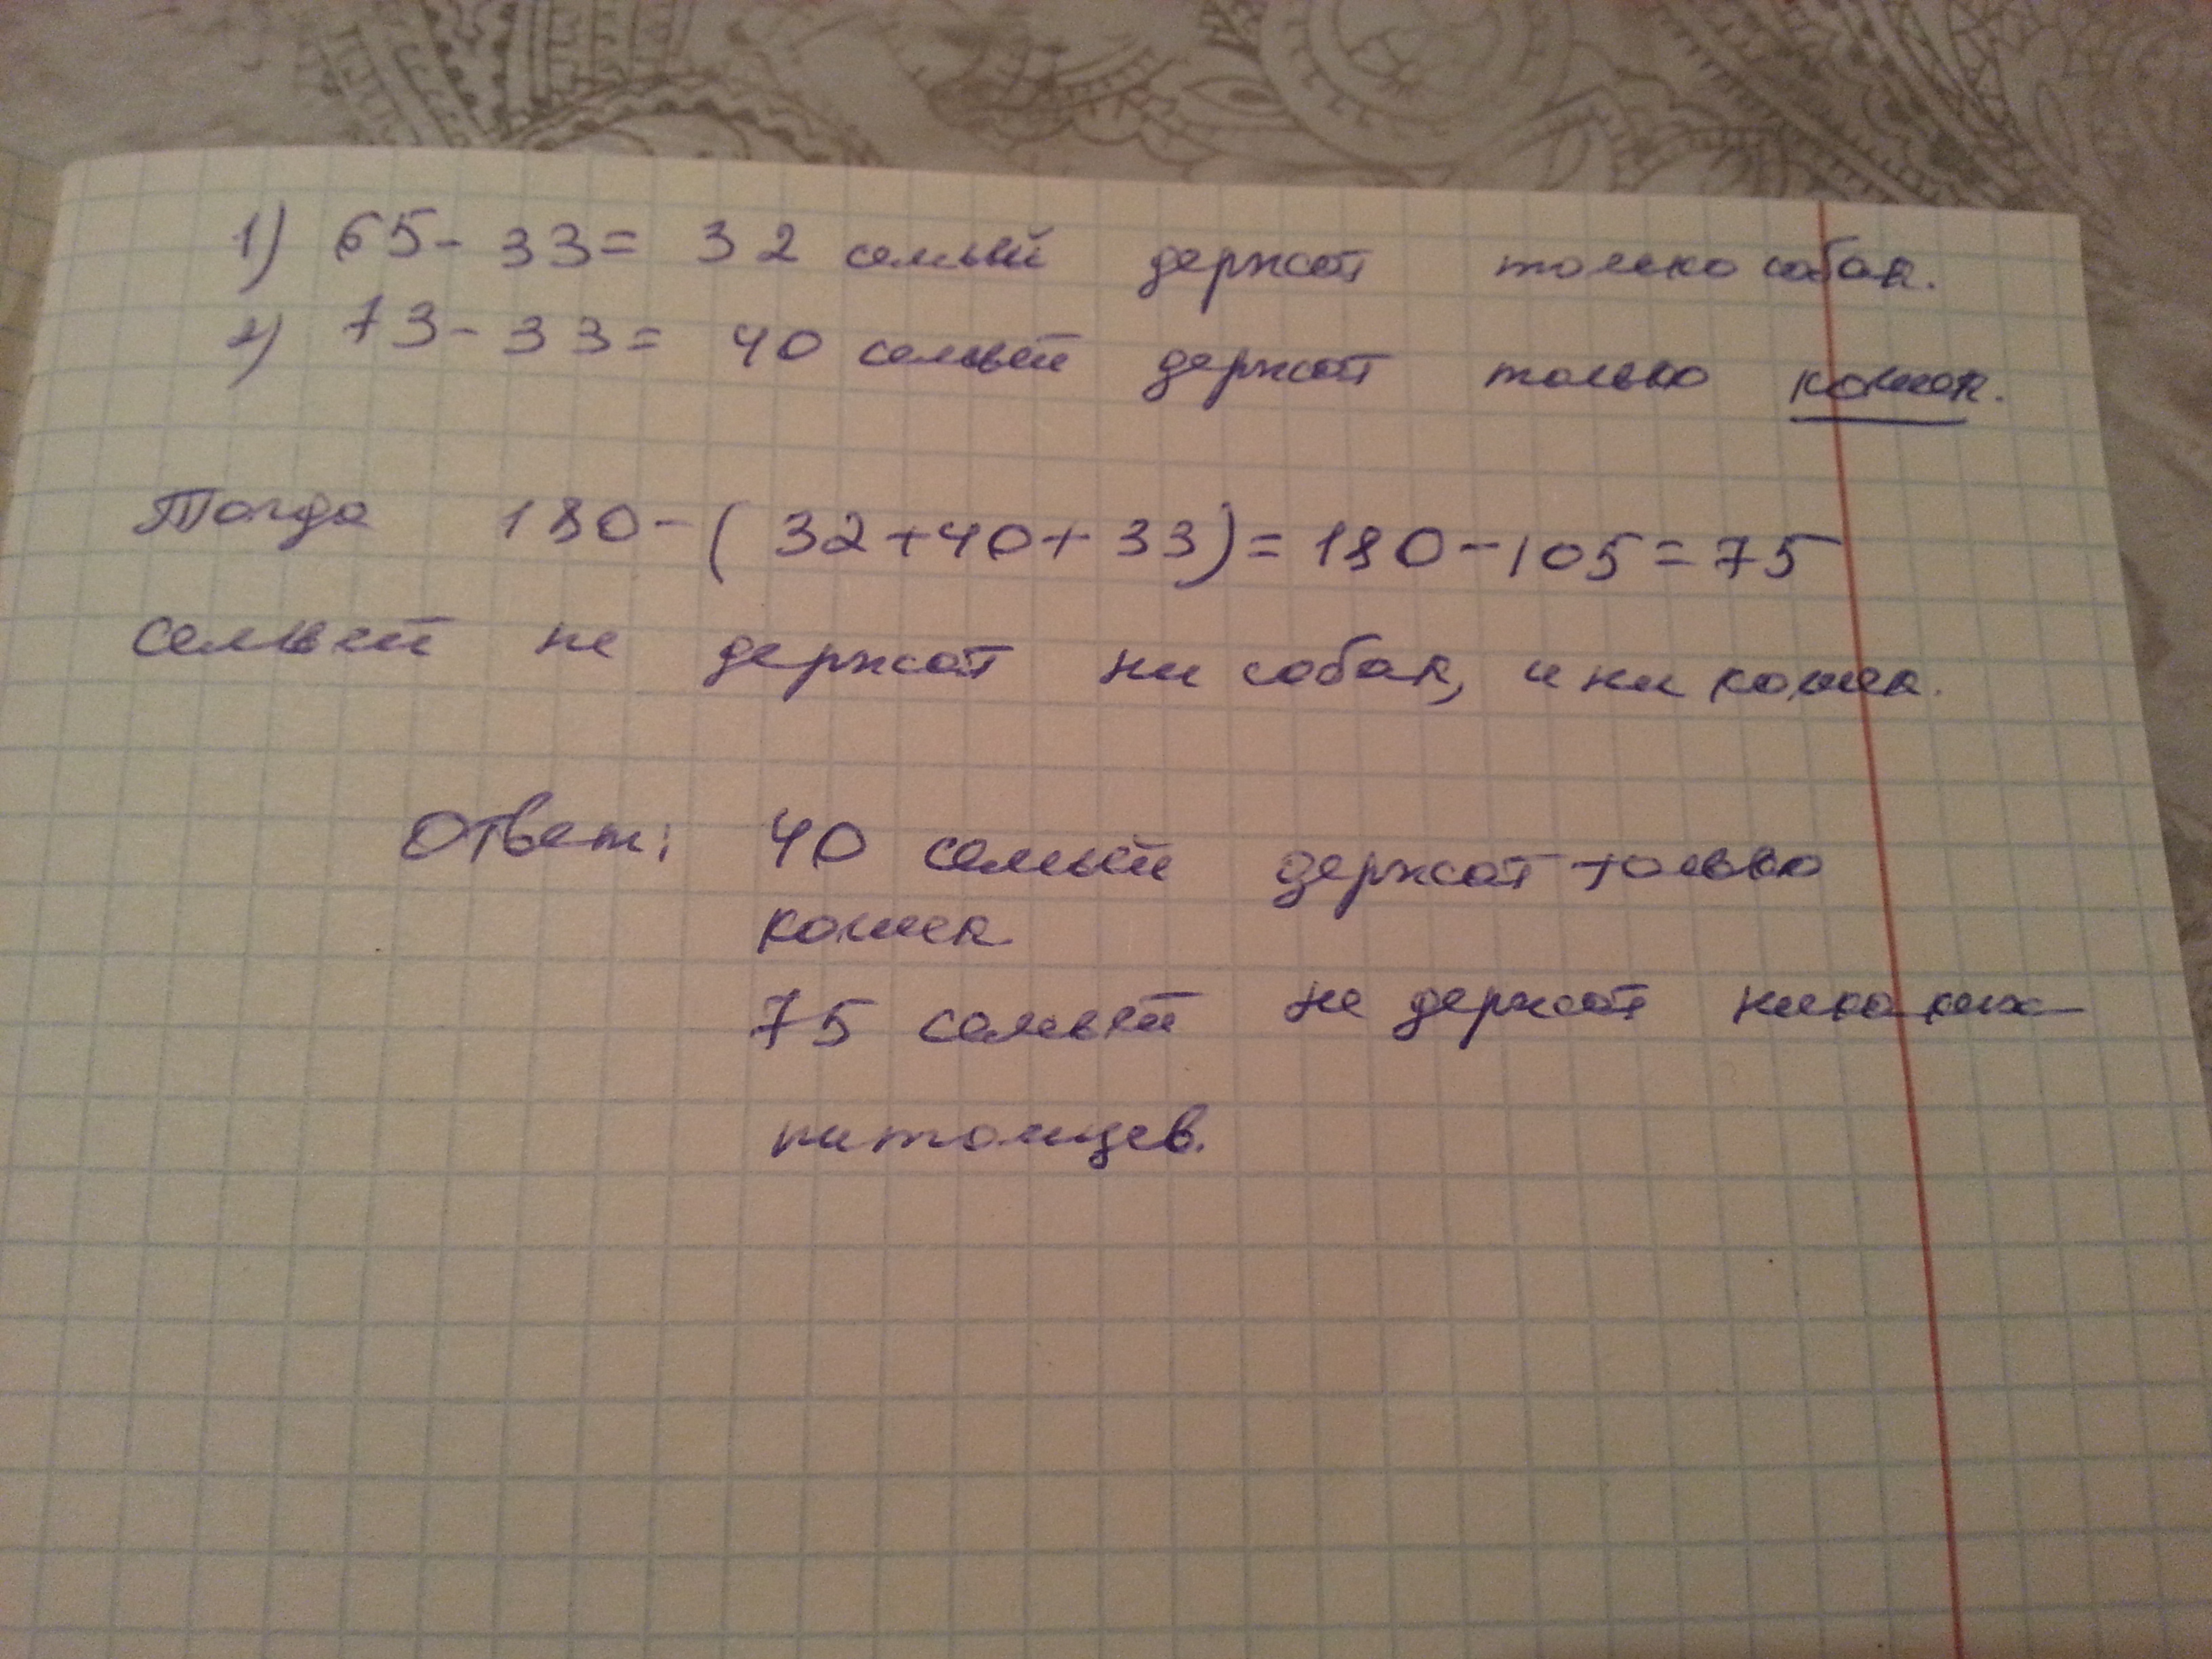 1) 65 - 33 = 32 семьи держат только собак.
2) 73 - 33 = 40 семьей держат только кошек.
Тогда 180 - ( 32 + 40 + 33 ) = 180 - 105 = 75
семьей не держат ни собак, и ни кошек.
Ответ: 40 семьей держат только
кошек
75 семьей не держат никаких
питомцев.